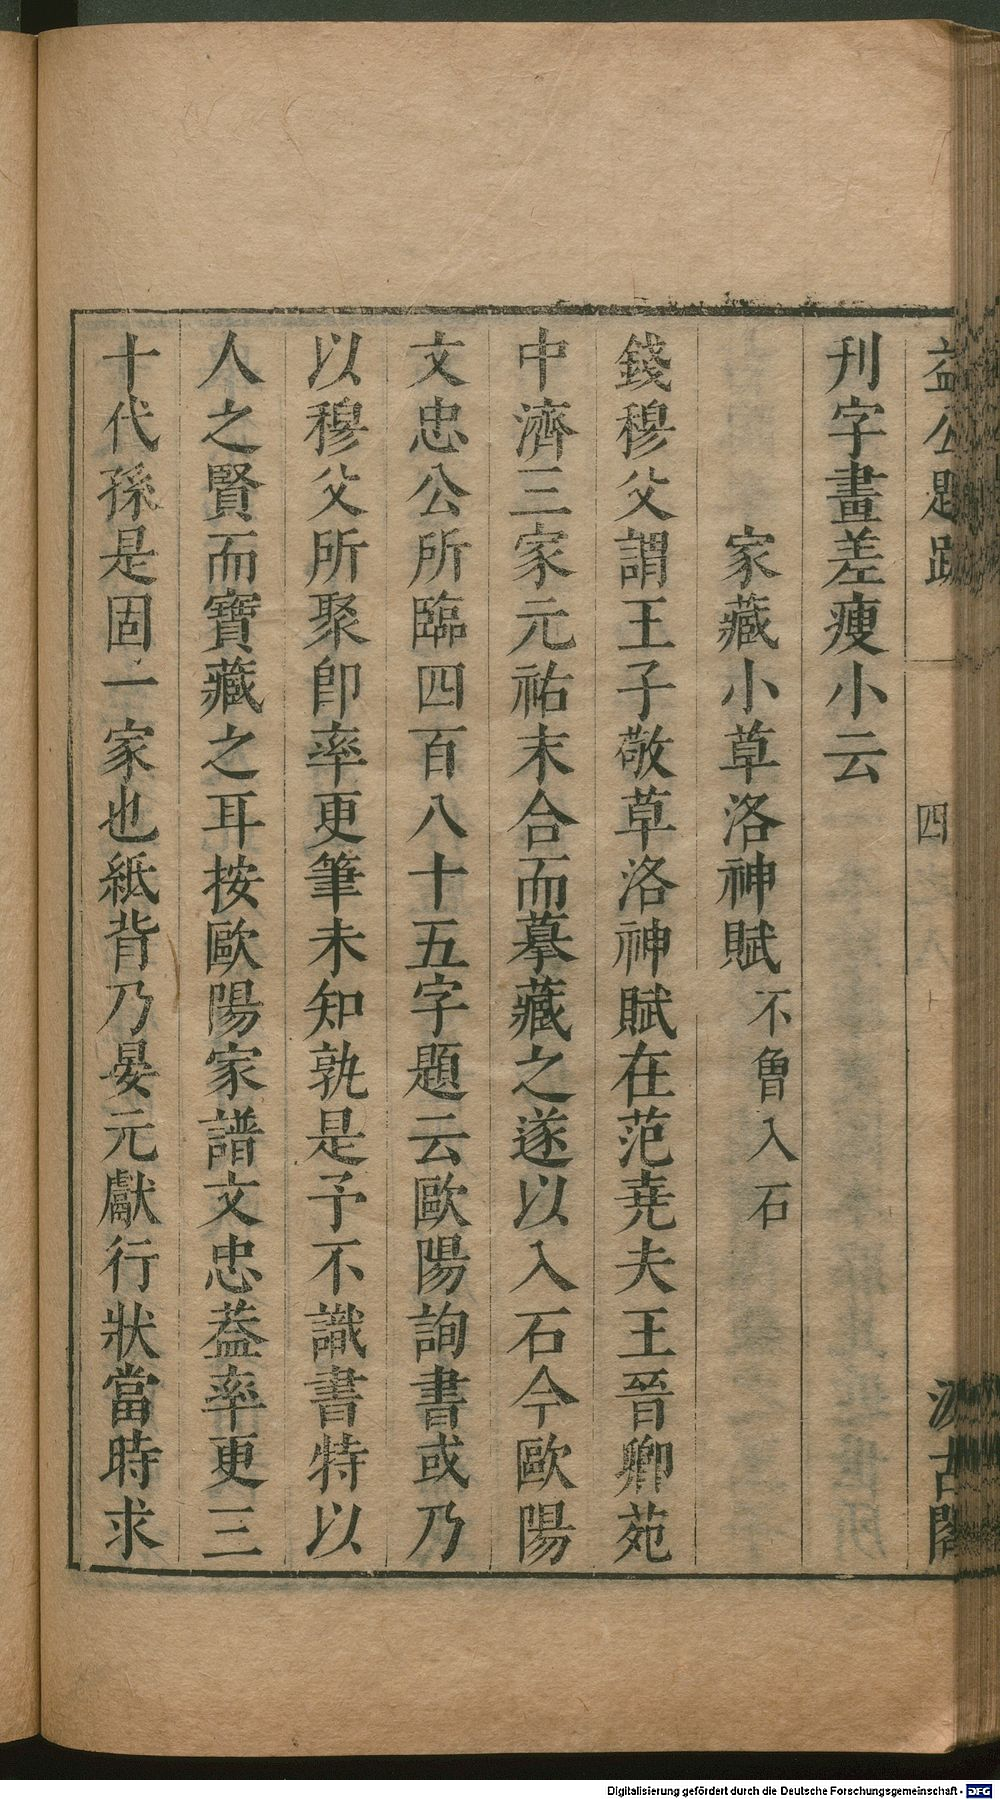 益公題跋 四 汲古閣
刋字畫差瘦小云
家藏小草洛神賦不曾入石
錢穆父謂王子敬草洛神賦在范堯夫王晉卿苑
中濟三家元祐末合而摹藏之遂以入石今歐陽
文忠公所臨四百八十五字題云歐陽詢書或乃
以穆父所聚卽率更筆未知孰是予不識書特以
人之賢而寶藏之耳按歐陽家譜文忠葢率更三
十代孫是固一家也紙背乃晏元獻行狀當時求
Digitalisierung gefördert durch die Deutsche Forschungsgemeinschaft - DFG